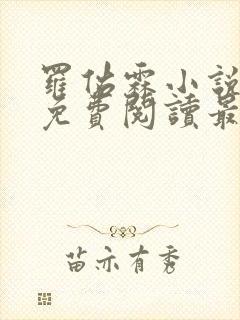 羅佑霖小說
免費閱讀最
苗亦有秀